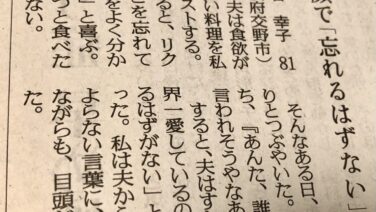 で「忘れるはずない」
幸子 81
府交野市）
夫は食欲が
い料理を私
ストする。
と、リク
とを忘れて
をよく分か
」と喜ぶ。
っと食べた
ない。
そんなある日、
りとつぶやいた。
ち、『あんた、誰
言われそうやなあ
すると、夫はす
界一愛しているの
るはずがない」と
った。私は夫から
よらない言葉に、
ながらも、目頭が
た。